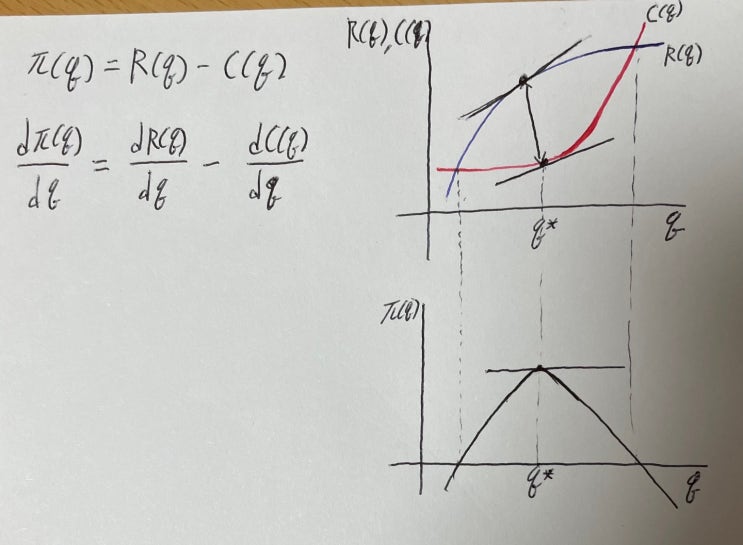 π(q) = R(q) - C(q)
dπ(q)/dq = dR(q)/dq - dC(q)/dq
R(q), C(q)
C(q)
R(q)
q*
q
π(q)
q*
q